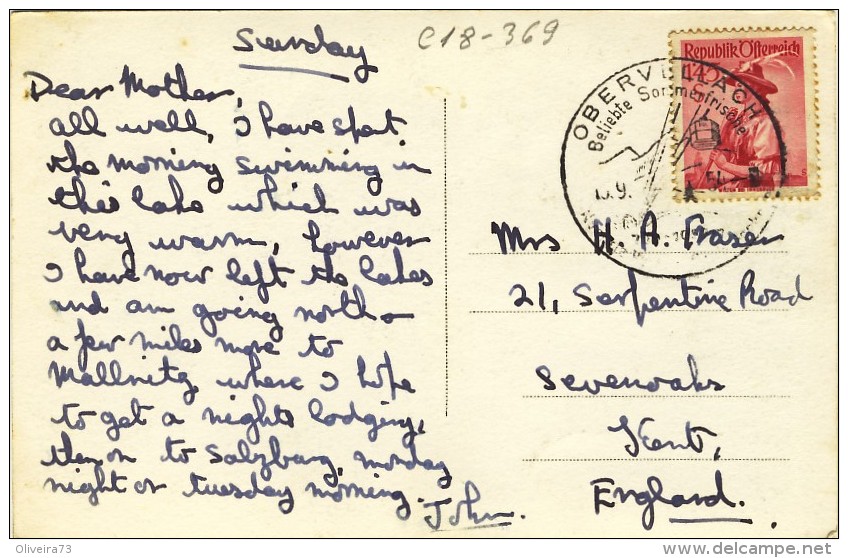 Sunday
C18-369
Dear Mother,
all well, I have spent
the morning swimming in
this lake which was
very warm, however
I have now left the lakes
and am going north -
a few miles more to
Mallnitz, where I hope
to get a nights lodging,
then on to Salzburg, monday
night or tuesday morning.
John.
Republik Österreich
1.40
OBERVELLACH
Beliebte Sommerfrische
Mrs H. A. Fraser
21, Serpentine Road
Sevenoaks
Kent,
England.
Oliveira73
www.delcampe.net